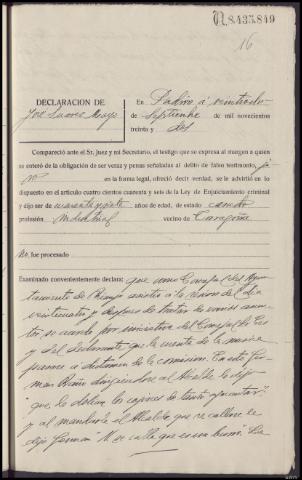 N.8.435.849
16
DECLARACION DE
José Suarez
En Padrón a veintidos
de Septiembre de mil novecientos
treinta y dos
Compareció ante el Sr. Juez y mi Secretario, el testigo que se expresa al margen a quien
se enteró de la obligación de ser veraz y penas señaladas al delito de falso testimonio,
en la forma legal, ofreció decir verdad, se le advirtió en lo
dispuesto en el artículo cuatro cientos cuarenta y seis de la Ley de Enjuiciamiento criminal
y dijo ser de cuarenta y siete años de edad, de estado casado
profesión industrial vecino de
No fue procesado
Examinado convenientemente declara: que como Concejal del Ayun-
tamiento de asistió a la sesion del dia
veintecuatro y despues de tratar los varios asun-
tos, se acordó por iniciativa del Concejal
y del declarante que la cuenta de
pasase a dictamen de la comision. En este
man dirigiendose al Alcalde le dijo
"que le debian los
y al mandarle el Alcalde que se callase le
dijo German "No me calle que es un